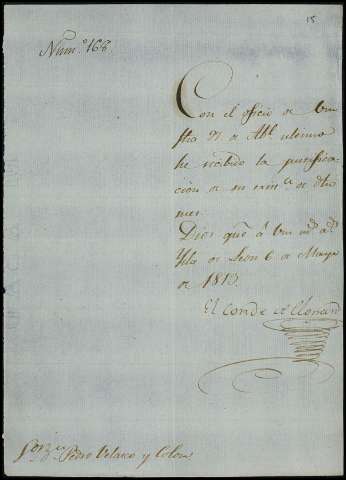 15
Num.º 166.
Con el oficio de Vm
fha 31 de Abl ultimo
he recibido la purifica-
cion de su de dho
mes.
Dios gue á Vm ms. as.
Ysla de Leon 6 de Mayo
de 1813.
El Conde de Clonard
Pedro Velasco y Colon